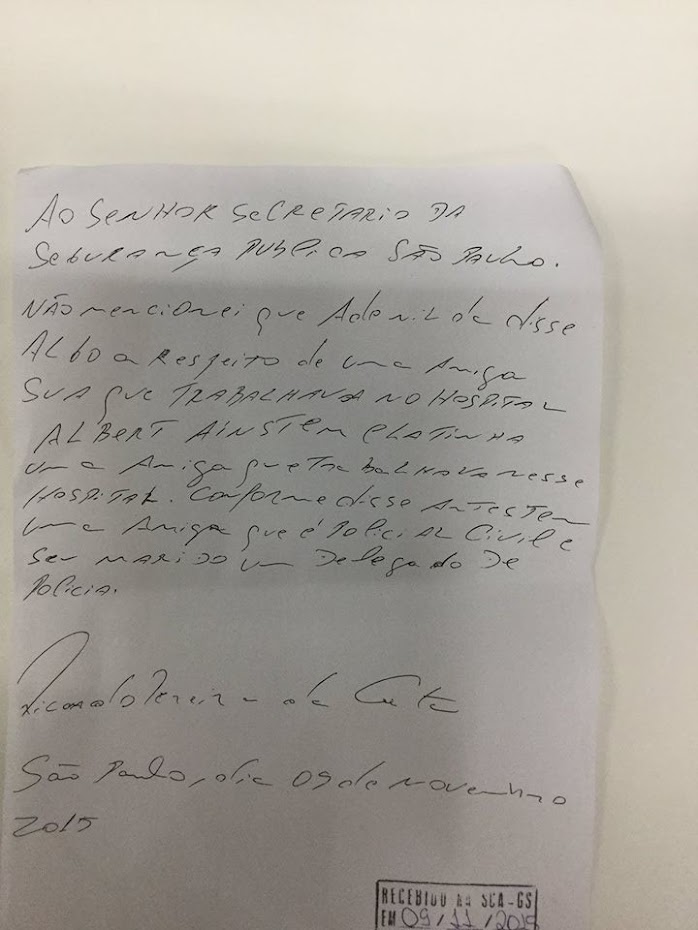 AO SENHOR SECRETARIO DA
SEGURANÇA PUBLICA SÃO PAULO.
NÃO mencionei que Adenilda disse
ALGO a Respeito de uma Amiga
SUA que TRABALHAVA NO HOSPITAL
ALBERT AINSTEM ELA TINHA
uma Amiga que Trabalhava nesse
HOSPITAL. Conforme disse ANTES TEM
uma Amiga que é POLICIAL Civil e
Seu MARIDO um Delegado De
Policia.
Ricardo Pereira da
São Paulo, dia 09 de novembro
2015
RECEBIDO NA SCA-GS
EM 09/11/2015